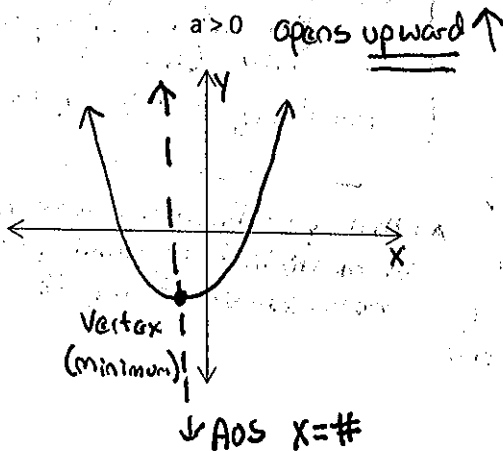 a > 0 opens upward ↑
y
x
Vertex
(minimum)
AOS X=#